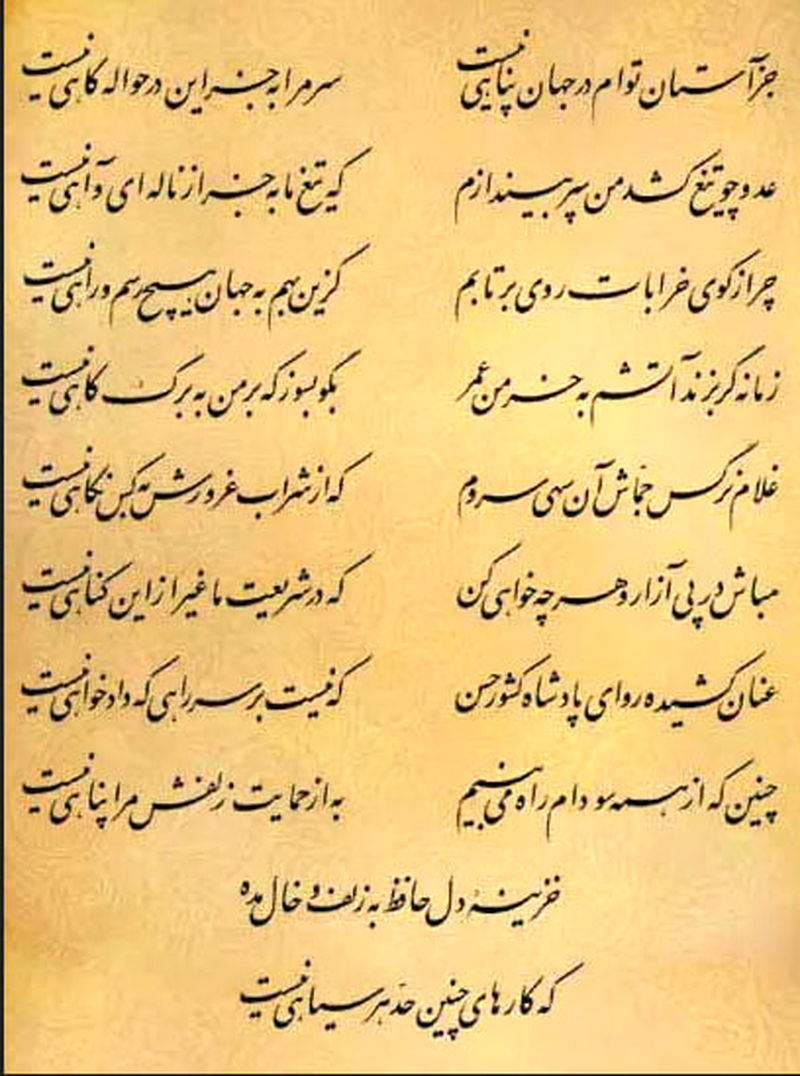 جز آستان توام در جهان پناهی نیست
سر مرا به جز این در حواله گاهی نیست
عدو چو تیغ کشد من سپر بیندازم
که تیغ ما به جز از ناله ای و آهی نیست
چرا ز کوی خرابات روی برتابم
کز این بهم به جهان هیچ رسم و راهی نیست
زمانه گر بزند آتشم به خرمن عمر
بگو بسوز که بر من به برگ کاهی نیست
غلام نرگس جماش آن سهی سروم
که از شراب غرورش به کس نگاهی نیست
مباش در پی آزار و هر چه خواهی کن
که در شریعت ما غیر از این گناهی نیست
عنان کشیده رو ای پادشاه کشور حسن
که نیست بر سر راهی که دادخواهی نیست
چنین که از همه سو دام راه می بینم
به از حمایت زلفش مرا پناهی نیست
خزینه دل حافظ به زلف و خال مده
که کارهای چنین حد هر سیاهی نیست